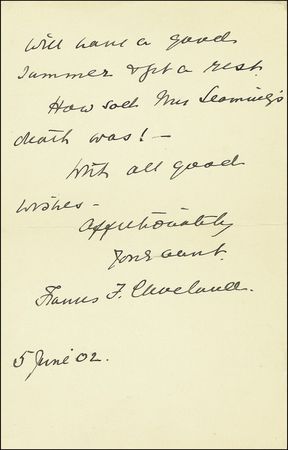 will have a good
summer & get a rest.
How sad Mrs Leaming's
death was! –
With all good
wishes –
affectionately
your aunt.
Frances F. Cleveland.
5 June 02.